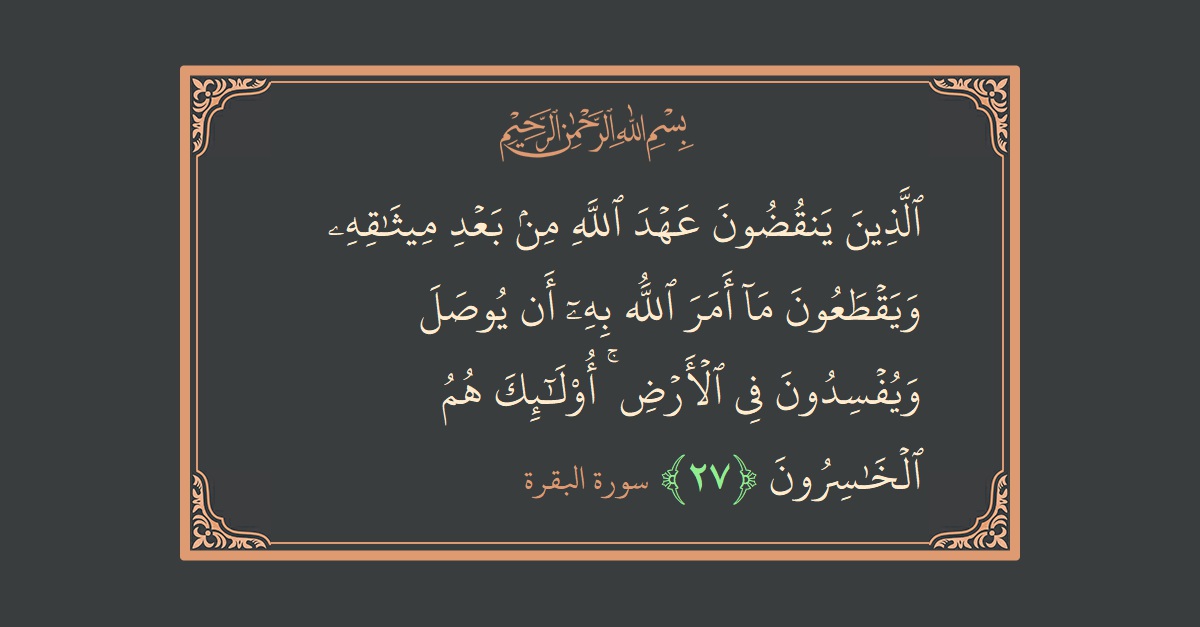 بِسْمِ اللهِ الرَّحْمٰنِ الرَّحِيْمِ
ٱلَّذِينَ يَنقُضُونَ عَهۡدَ ٱللَّهِ مِنۢ بَعۡدِ مِيثَٰقِهِۦ
وَيَقۡطَعُونَ مَآ أَمَرَ ٱللَّهُ بِهِۦٓ أَن يُوصَلَ
وَيُفۡسِدُونَ فِي ٱلۡأَرۡضِۚ أُوْلَٰٓئِكَ هُمُ
ٱلۡخَٰسِرُونَ ﴿٢٧﴾ سورة البقرة